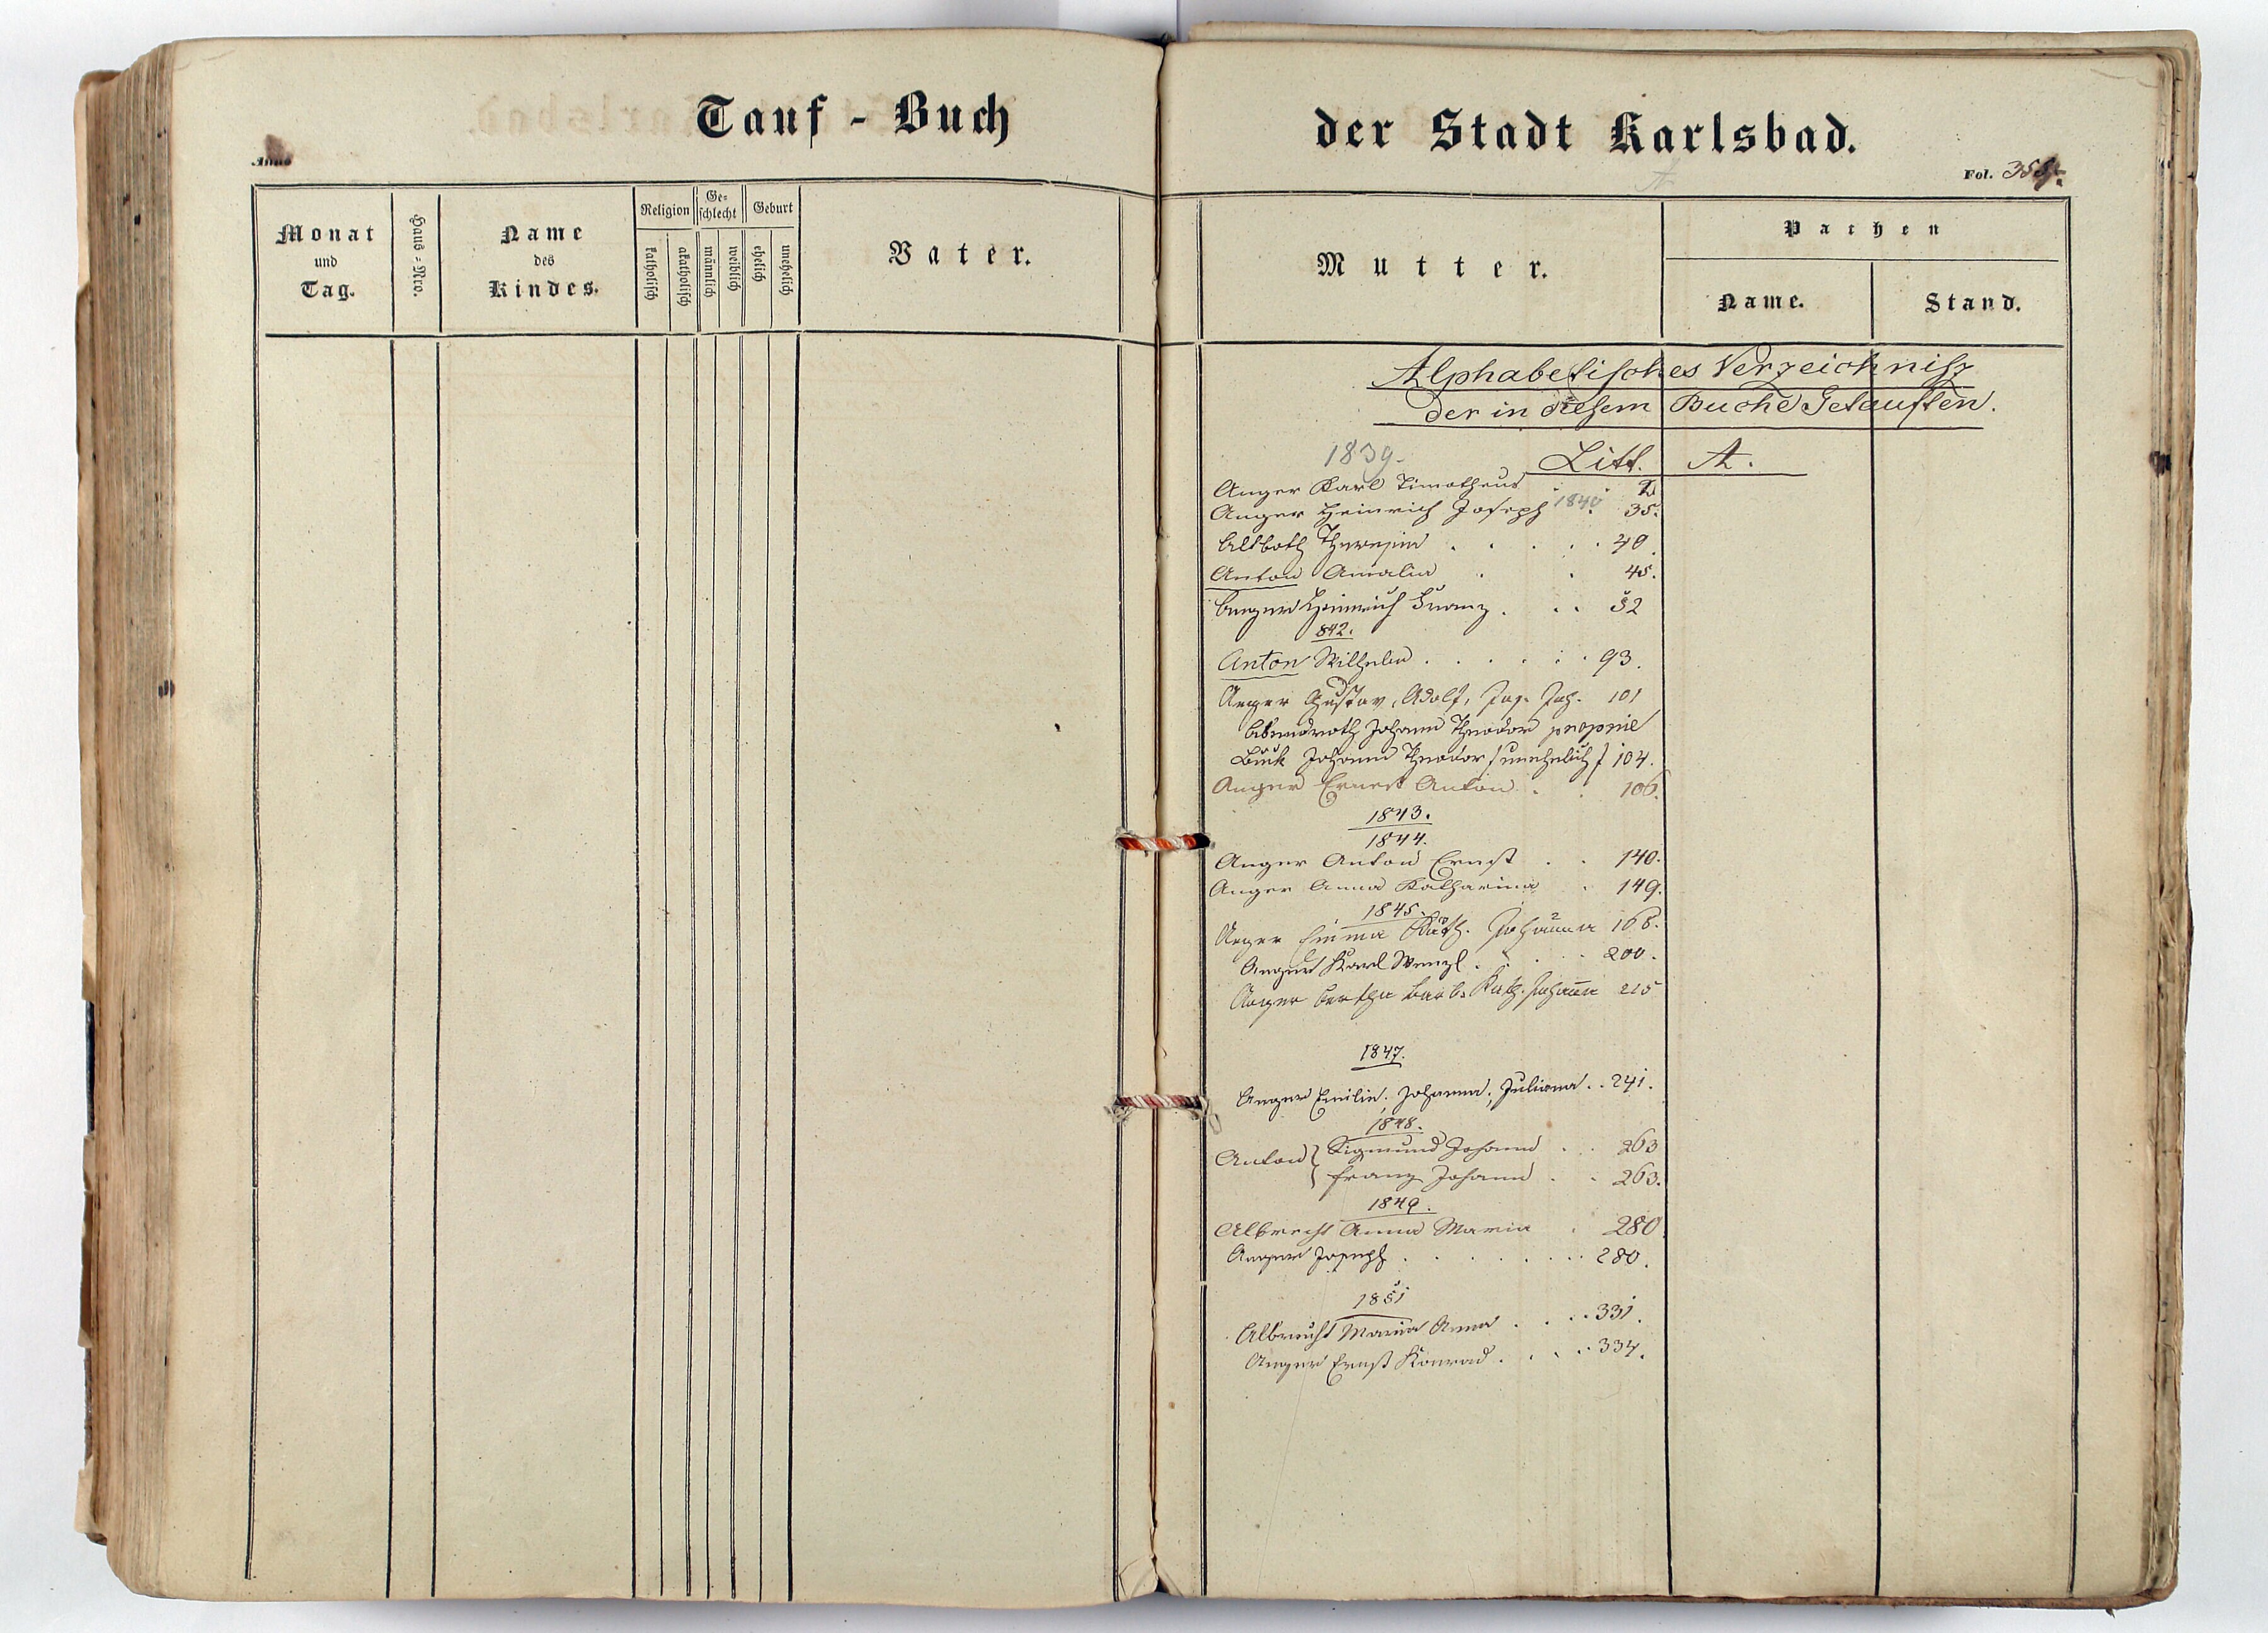 Tauf - Buch
Anno
Monat und Tag.
Haus-Nro.
Name des Kindes.
Religion
katholisch
akatholisch
Geschlecht
männlich
weiblich
Geburt
ehelich
unehelich
Vater.
der Stadt Karlsbad.
Fol.
Mutter.
Pathen
Name.
Stand.
Alphabetisches Verzeichniß
der in diesem Buche Getauften.
1839.
Litt. A.
Anger Karl Timotheus 2
Anger Heinrich Joseph 1840 35.
Theresia 40.
Anton Amalia 45.
Anger Heinrich Franz. 52
842.
Anton Wilhelm 93.
Anger Gustav, Adolf, 101
Abendroth Johann Theodor proprie
Buck Johann Theodor / unehelich / 104.
Anger Ernest Anton 106.
1843.
1844.
Anger Anton Ernst 140.
Anger Anna Katharina 149.
1845.
Anger Emma Kath. Johanna 168.
Anger Karl Wenzl 200.
Anger Bertha Barb. Kath. Johanna 215
1847.
Anger Emilie. Johanna, Juliana 241.
1848.
Anton { Sigmund Johann 263
{ Franz Johann 263.
1849.
Albrecht Anna Maria 280
Anger Joseph 280.
1851
Albrecht Maria Anna 331.
Anger Ernst Konrad 334.